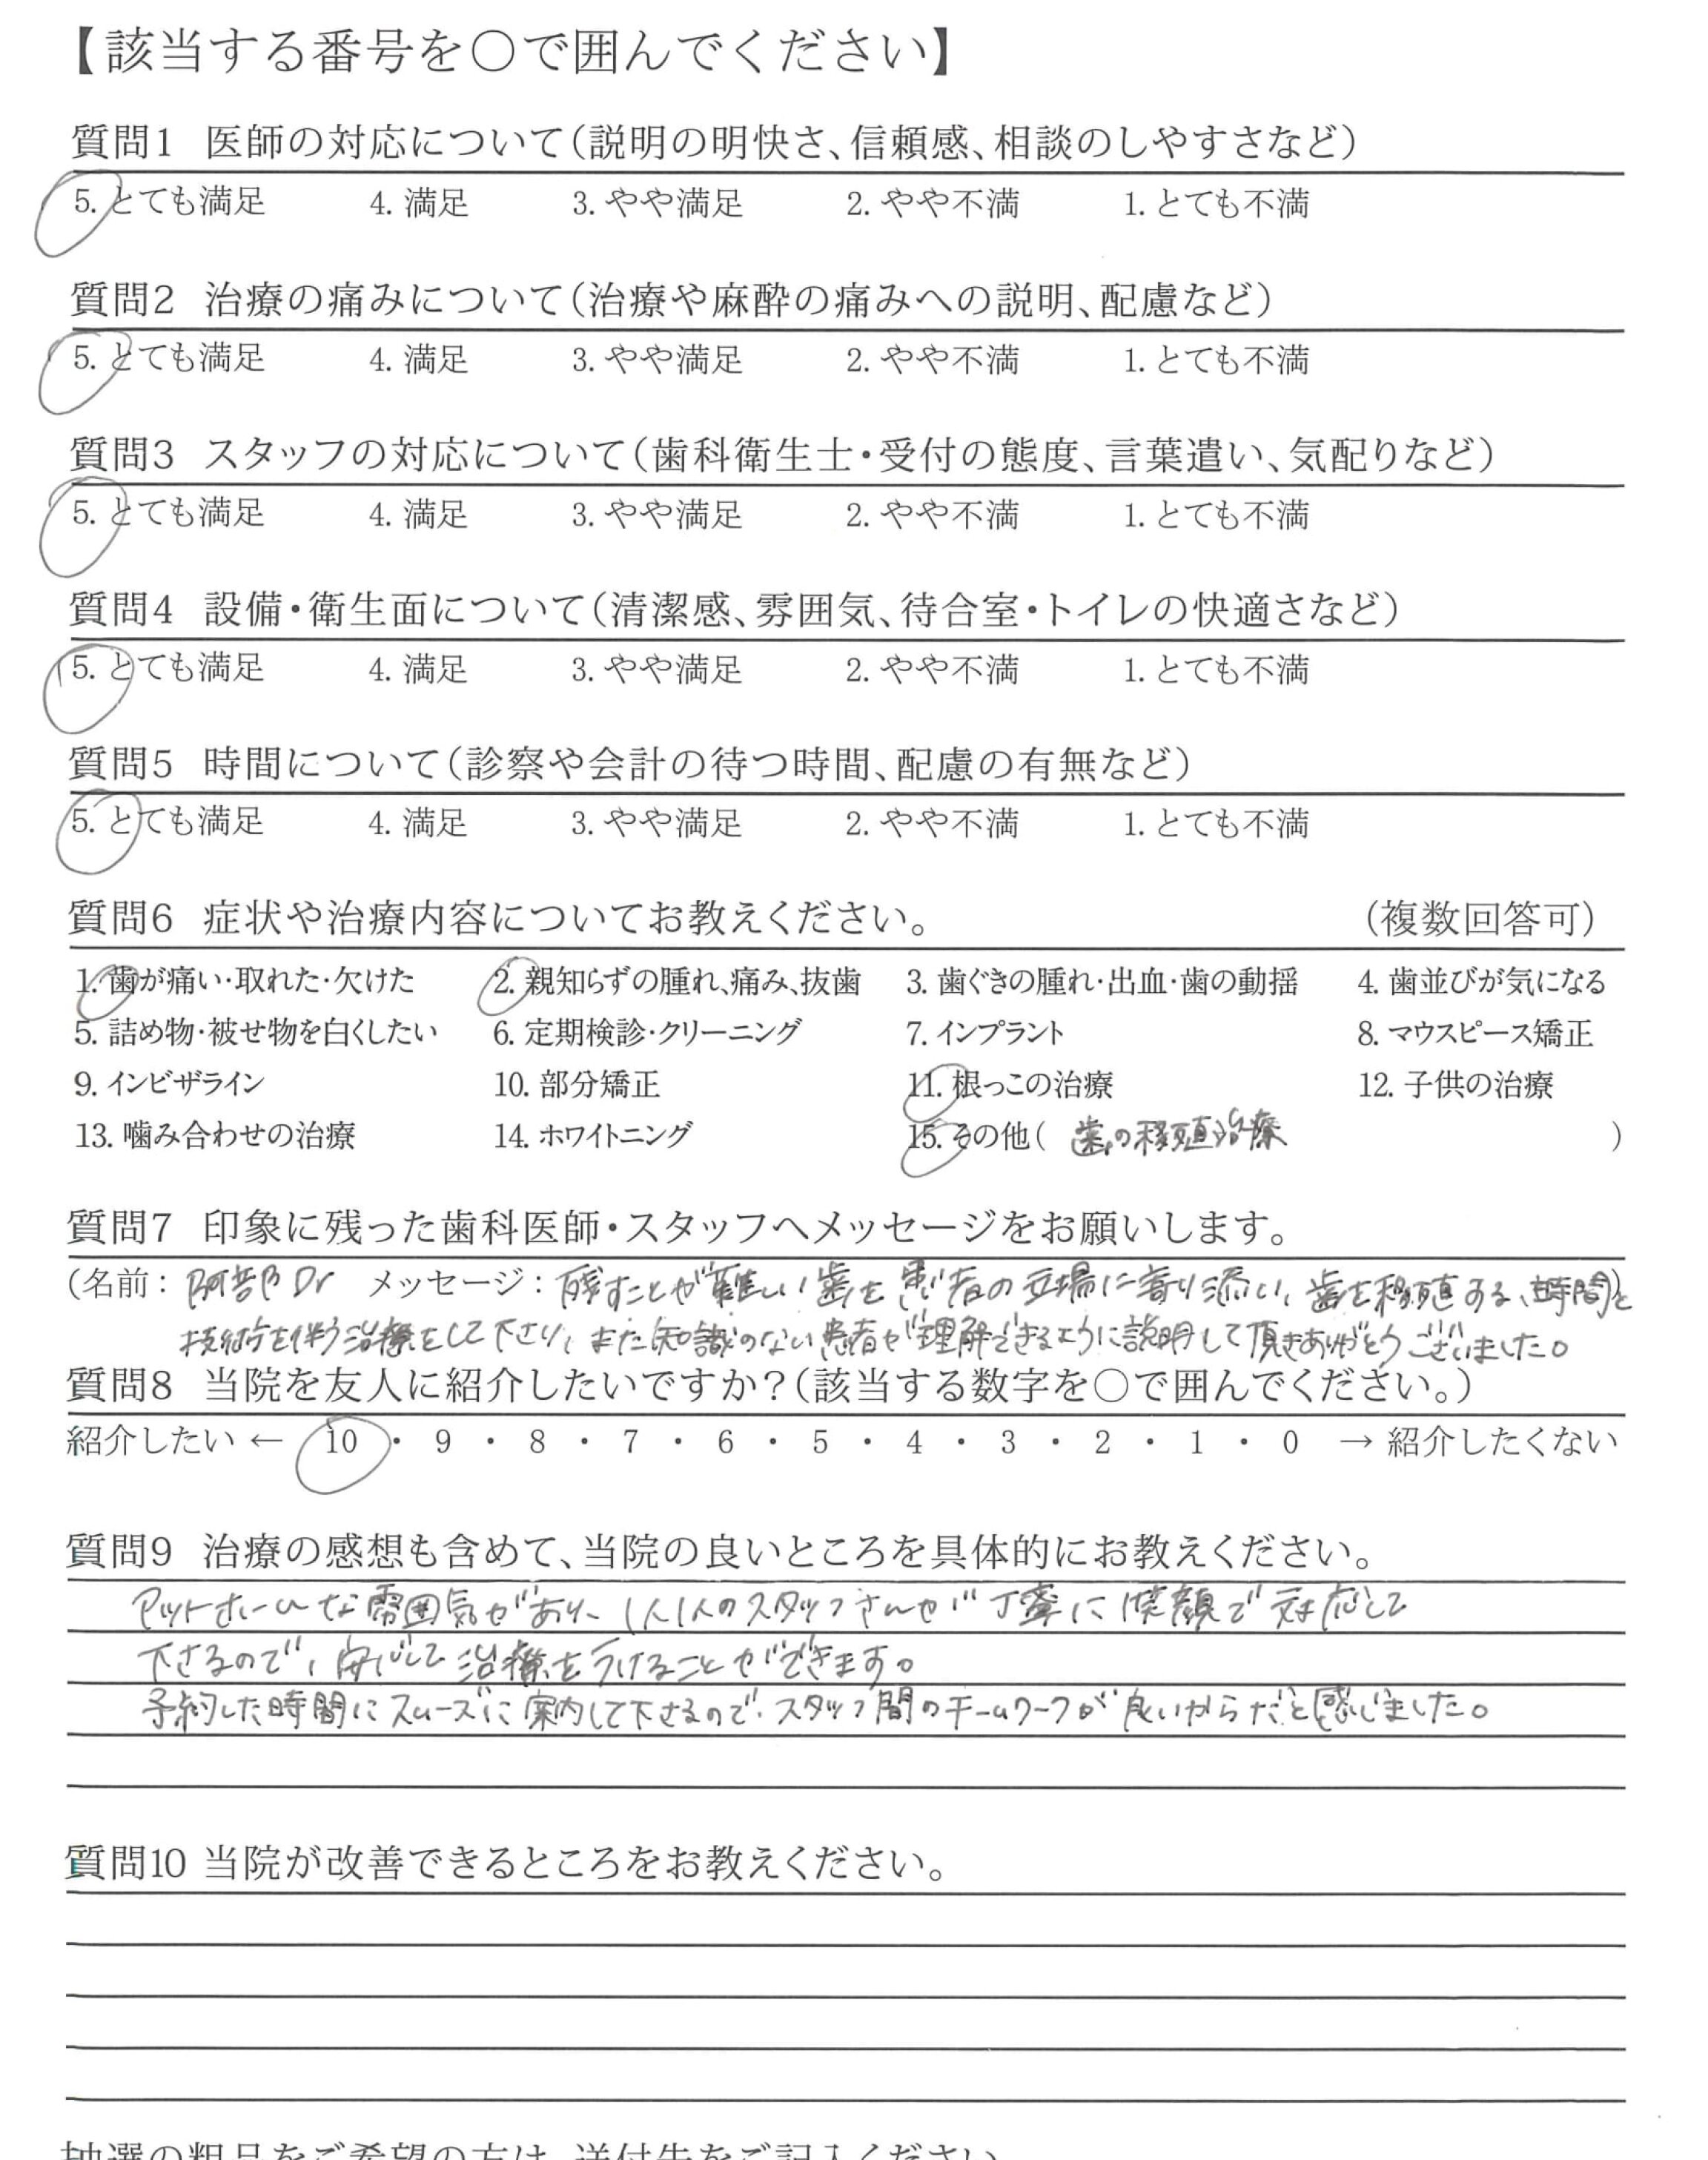 【該当する番号を○で囲んでください】
質問1 医師の対応について(説明の明快さ、信頼感、相談のしやすさなど)
5. とても満足 4. 満足 3. やや満足 2. やや不満 1. とても不満
質問2 治療の痛みについて(治療や麻酔の痛みへの説明、配慮など)
5. とても満足 4. 満足 3. やや満足 2. やや不満 1. とても不満
質問3 スタッフの対応について(歯科衛生士・受付の態度、言葉遣い、気配りなど)
5. とても満足 4. 満足 3. やや満足 2. やや不満 1. とても不満
質問4 設備・衛生面について(清潔感、雰囲気、待合室・トイレの快適さなど)
5. とても満足 4. 満足 3. やや満足 2. やや不満 1. とても不満
質問5 時間について(診察や会計の待つ時間、配慮の有無など)
5. とても満足 4. 満足 3. やや満足 2. やや不満 1. とても不満
質問6 症状や治療内容についてお教えください。 (複数回答可)
1. 歯が痛い・取れた・欠けた 2. 親知らずの腫れ、痛み、抜歯 3. 歯ぐきの腫れ・出血・歯の動揺 4. 歯並びが気になる
5. 詰め物・被せ物を白くしたい 6. 定期検診・クリーニング 7. インプラント 8. マウスピース矯正
9. インビザライン 10. 部分矯正 11. 根っこの治療 12. 子供の治療
13. 噛み合わせの治療 14. ホワイトニング 15. その他( 歯の移植治療 )
質問7 印象に残った歯科医師・スタッフへメッセージをお願いします。
(名前: 阿部Dr メッセージ: 残すことが難しい歯を患者の立場に寄り添い、歯を移植する、時間と)
技術を伴う治療をして下さり、また知識のない患者が理解できるように説明して頂きありがとうございました。
質問8 当院を友人に紹介したいですか?(該当する数字を○で囲んでください。)
紹介したい ← 10 ・ 9 ・ 8 ・ 7 ・ 6 ・ 5 ・ 4 ・ 3 ・ 2 ・ 1 ・ 0 → 紹介したくない
質問9 治療の感想も含めて、当院の良いところを具体的にお教えください。
アットホームな雰囲気があり、1人1人のスタッフさんが丁寧に笑顔で対応して
下さるので、安心して治療をうけることができます。
予約した時間にスムーズに案内して下さるので、スタッフ間のチームワークが良いからだと感じました。
質問10 当院が改善できるところをお教えください。
抽選の粗品をご希望の方は、送付先をご記入ください